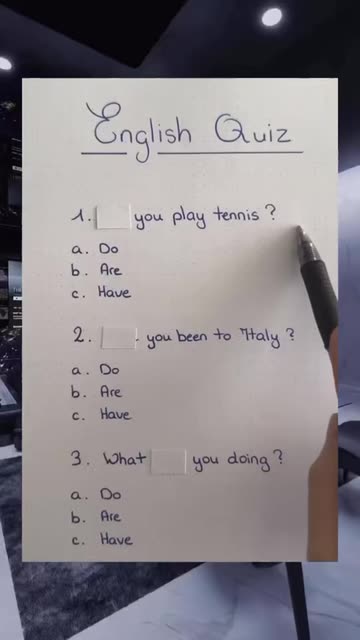 English Quiz
1. you play tennis?
a. Do
b. Are
c. Have
2. you been to Italy?
a. Do
b. Are
c. Have
3. What you doing?
a. Do
b. Are
c. Have